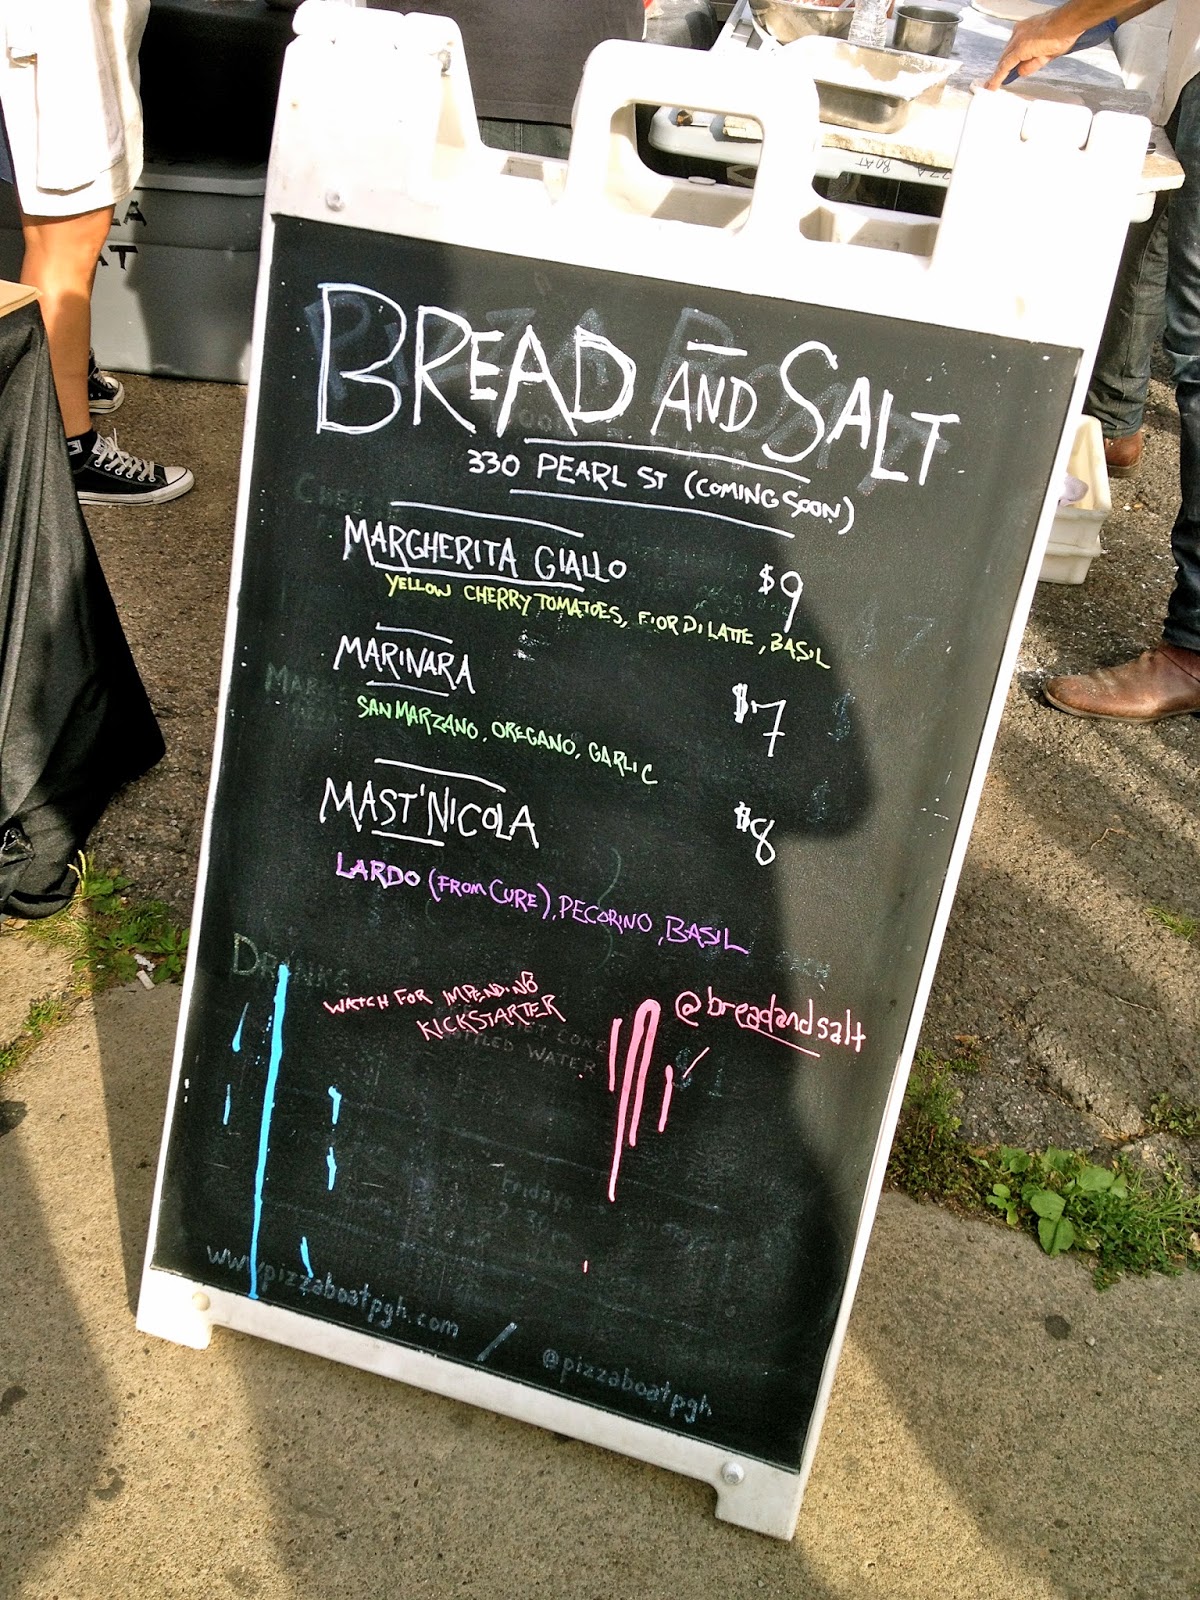 BREAD AND SALT
330 PEARL ST (COMING SOON)
MARGHERITA GIALLO $9
YELLOW CHERRY TOMATOES, FIOR DI LATTE, BASIL
MARINARA $7
SAN MARZANO, OREGANO, GARLIC
MAST'NICOLA $8
LARDO (FROM CURE), PECORINO, BASIL
WATCH FOR IMPENDING
KICKSTARTER
@breadandsalt
WATER
Fridays
www.pizzaboatpgh.com / @pizzaboatpgh
BOAT